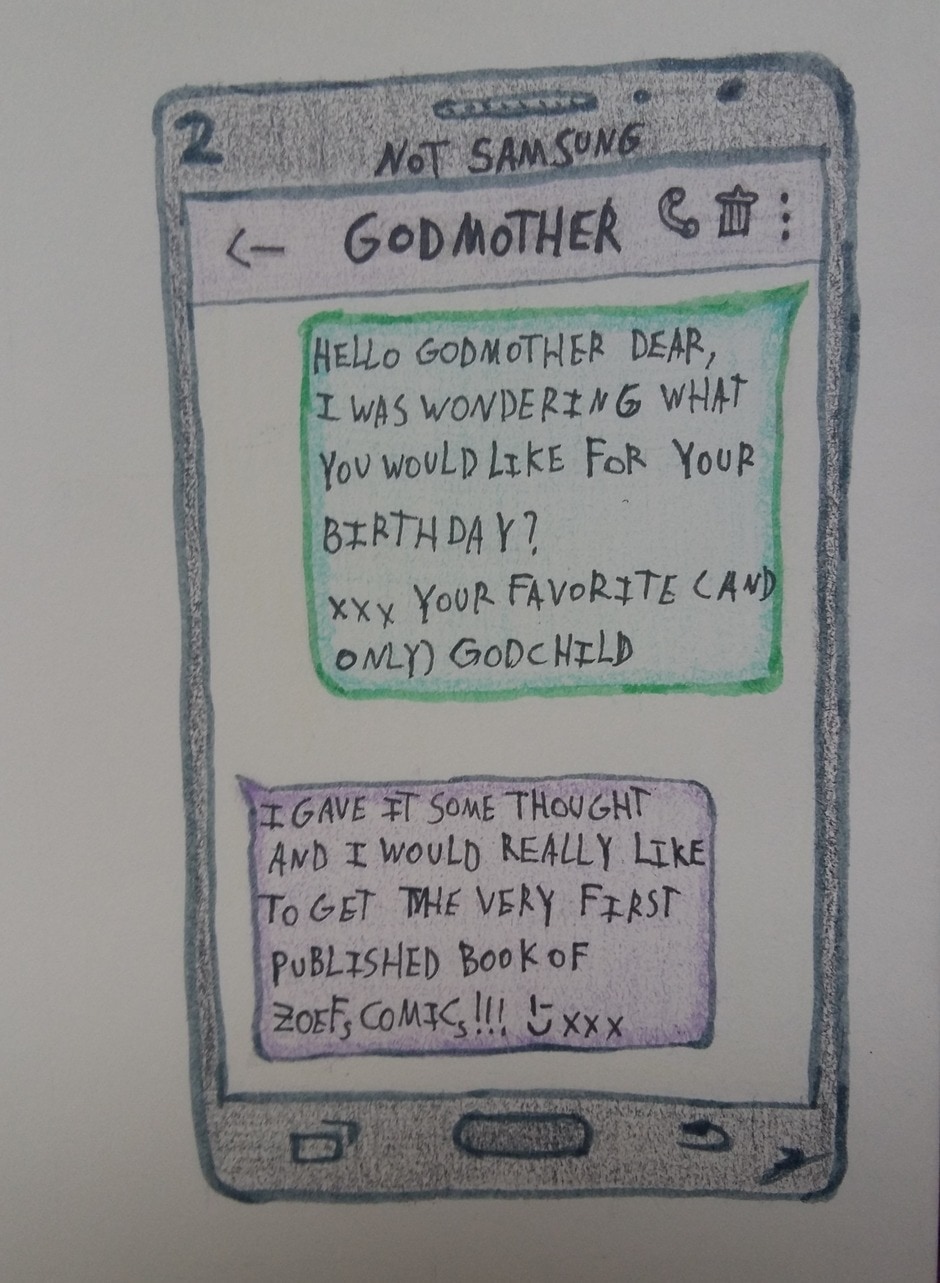 2
NOT SAMSUNG
GODMOTHER
HELLO GODMOTHER DEAR,
I WAS WONDERING WHAT
YOU WOULD LIKE FOR YOUR
BIRTHDAY?
xxx YOUR FAVORITE (AND
ONLY) GODCHILD
I GAVE IT SOME THOUGHT
AND I WOULD REALLY LIKE
TO GET THE VERY FIRST
PUBLISHED BOOK OF
ZOEFs COMICs!!! xxx